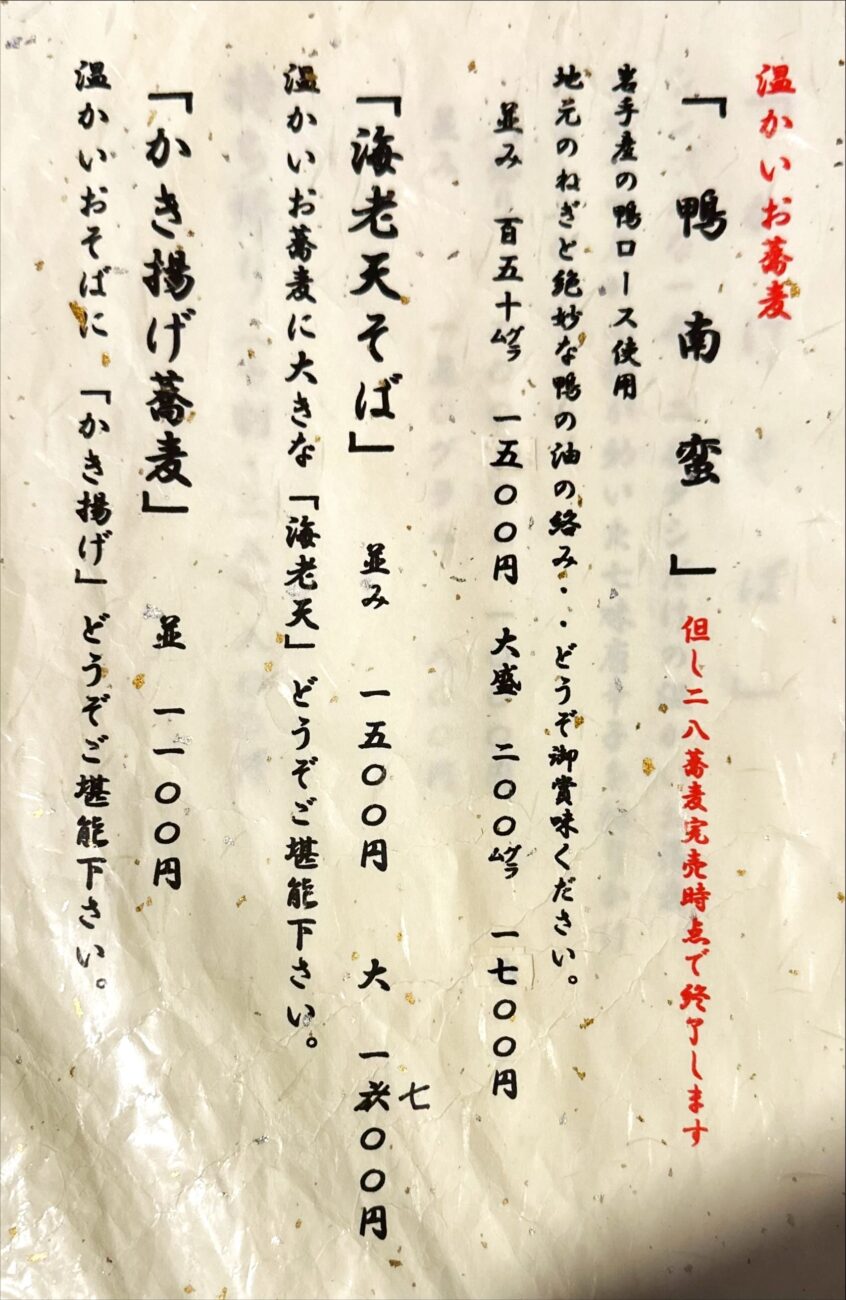 温かいお蕎麦
「鴨南蛮」 但し二八蕎麦完売時点で終了します
岩手産の鴨ロース使用
地元のねぎと絶妙な鴨の油の絡み・・どうぞ御賞味ください。
並み 百五十㌘ 一五〇〇円 大盛 二〇〇㌘ 一七〇〇円
「海老天そば」 並み 一五〇〇円 大 一七〇〇円
温かいお蕎麦に大きな「海老天」どうぞご堪能下さい。
「かき揚げ蕎麦」 並 一一〇〇円
温かいおそばに、「かき揚げ」どうぞご堪能下さい。